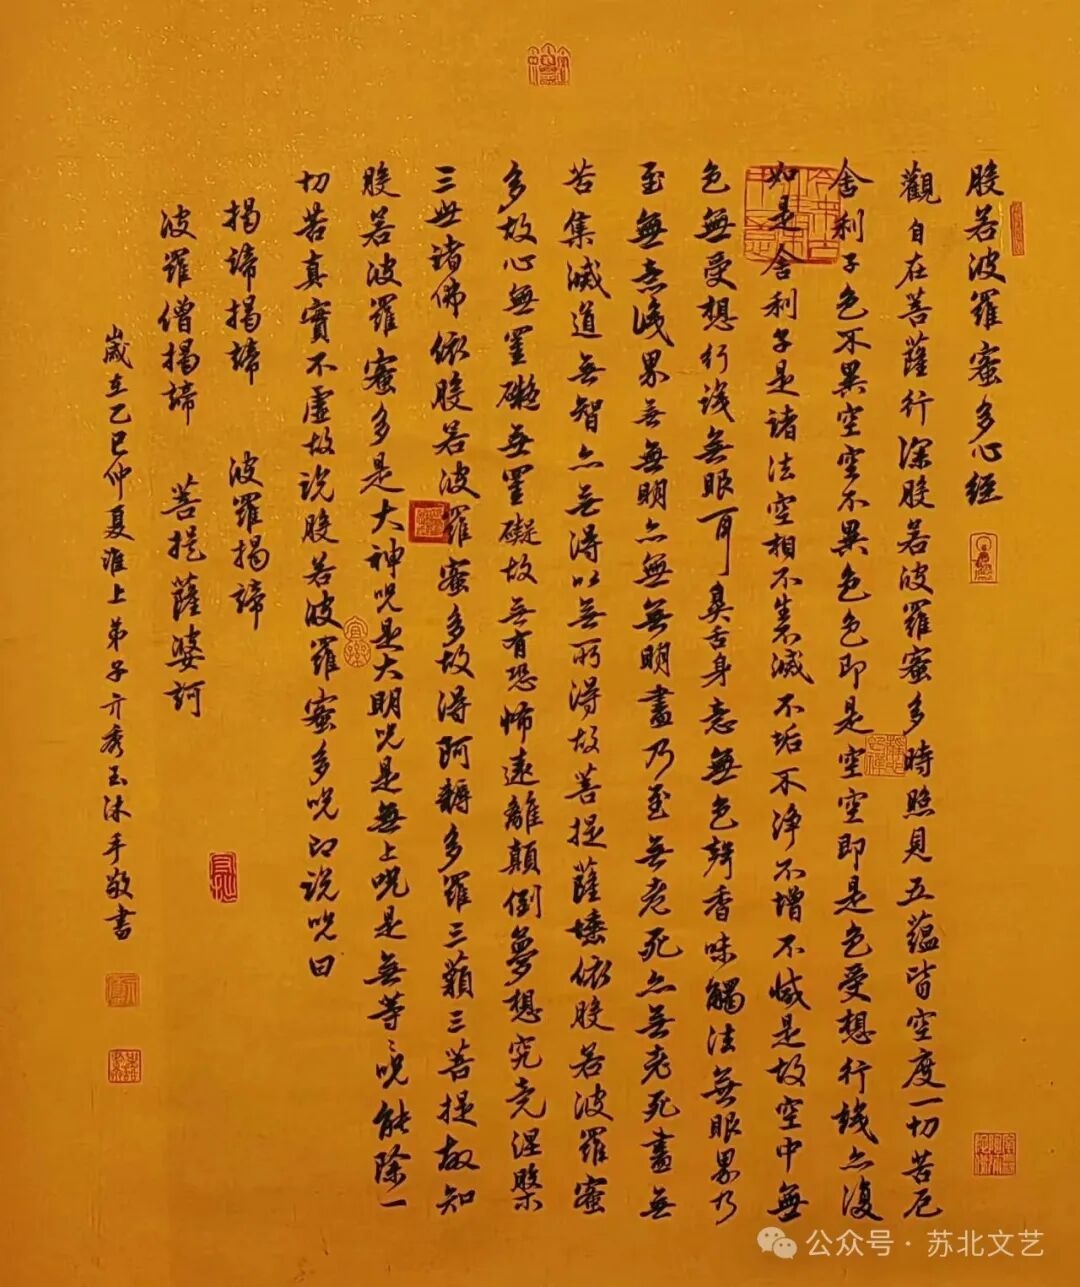 般若波羅蜜多心經
觀自在菩薩行深般若波羅蜜多時照見五蘊皆空度一切苦厄
舍利子色不異空空不異色色即是空空即是色受想行識亦復
如是舍利子是諸法空相不生不滅不垢不淨不增不減是故空中無
色無受想行識無眼耳鼻舌身意無色聲香味觸法無眼界乃
至無意識界無無明亦無無明盡乃至無老死亦無老死盡無
苦集滅道無智亦無得以無所得故菩提薩埵依般若波羅蜜
多故心無罣礙無罣礙故無有恐怖遠離顛倒夢想究竟涅槃
三世諸佛依般若波羅蜜多故得阿耨多羅三藐三菩提故知
般若波羅蜜多是大神咒是大明咒是無上咒是無等々咒能除一
切苦真實不虛故說般若波羅蜜多咒即說咒曰
揭諦揭諦 波羅揭諦
波羅僧揭諦 菩提薩婆訶
歲在乙巳仲夏淮上弟子亓秀玉沐手敬書
公众号 · 苏北文艺